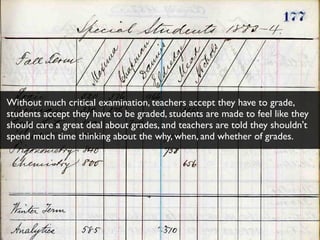 177
Special Students 1883-4.
Fall Term
Without much critical examination, teachers accept they have to grade,
students accept they have to be graded, students are made to feel like they
should care a great deal about grades, and teachers are told they shouldn't
spend much time thinking about the why, when, and whether of grades.
Trigonometry 840 758
Chemistry 800 656
Winter Term
Analytics 585 370